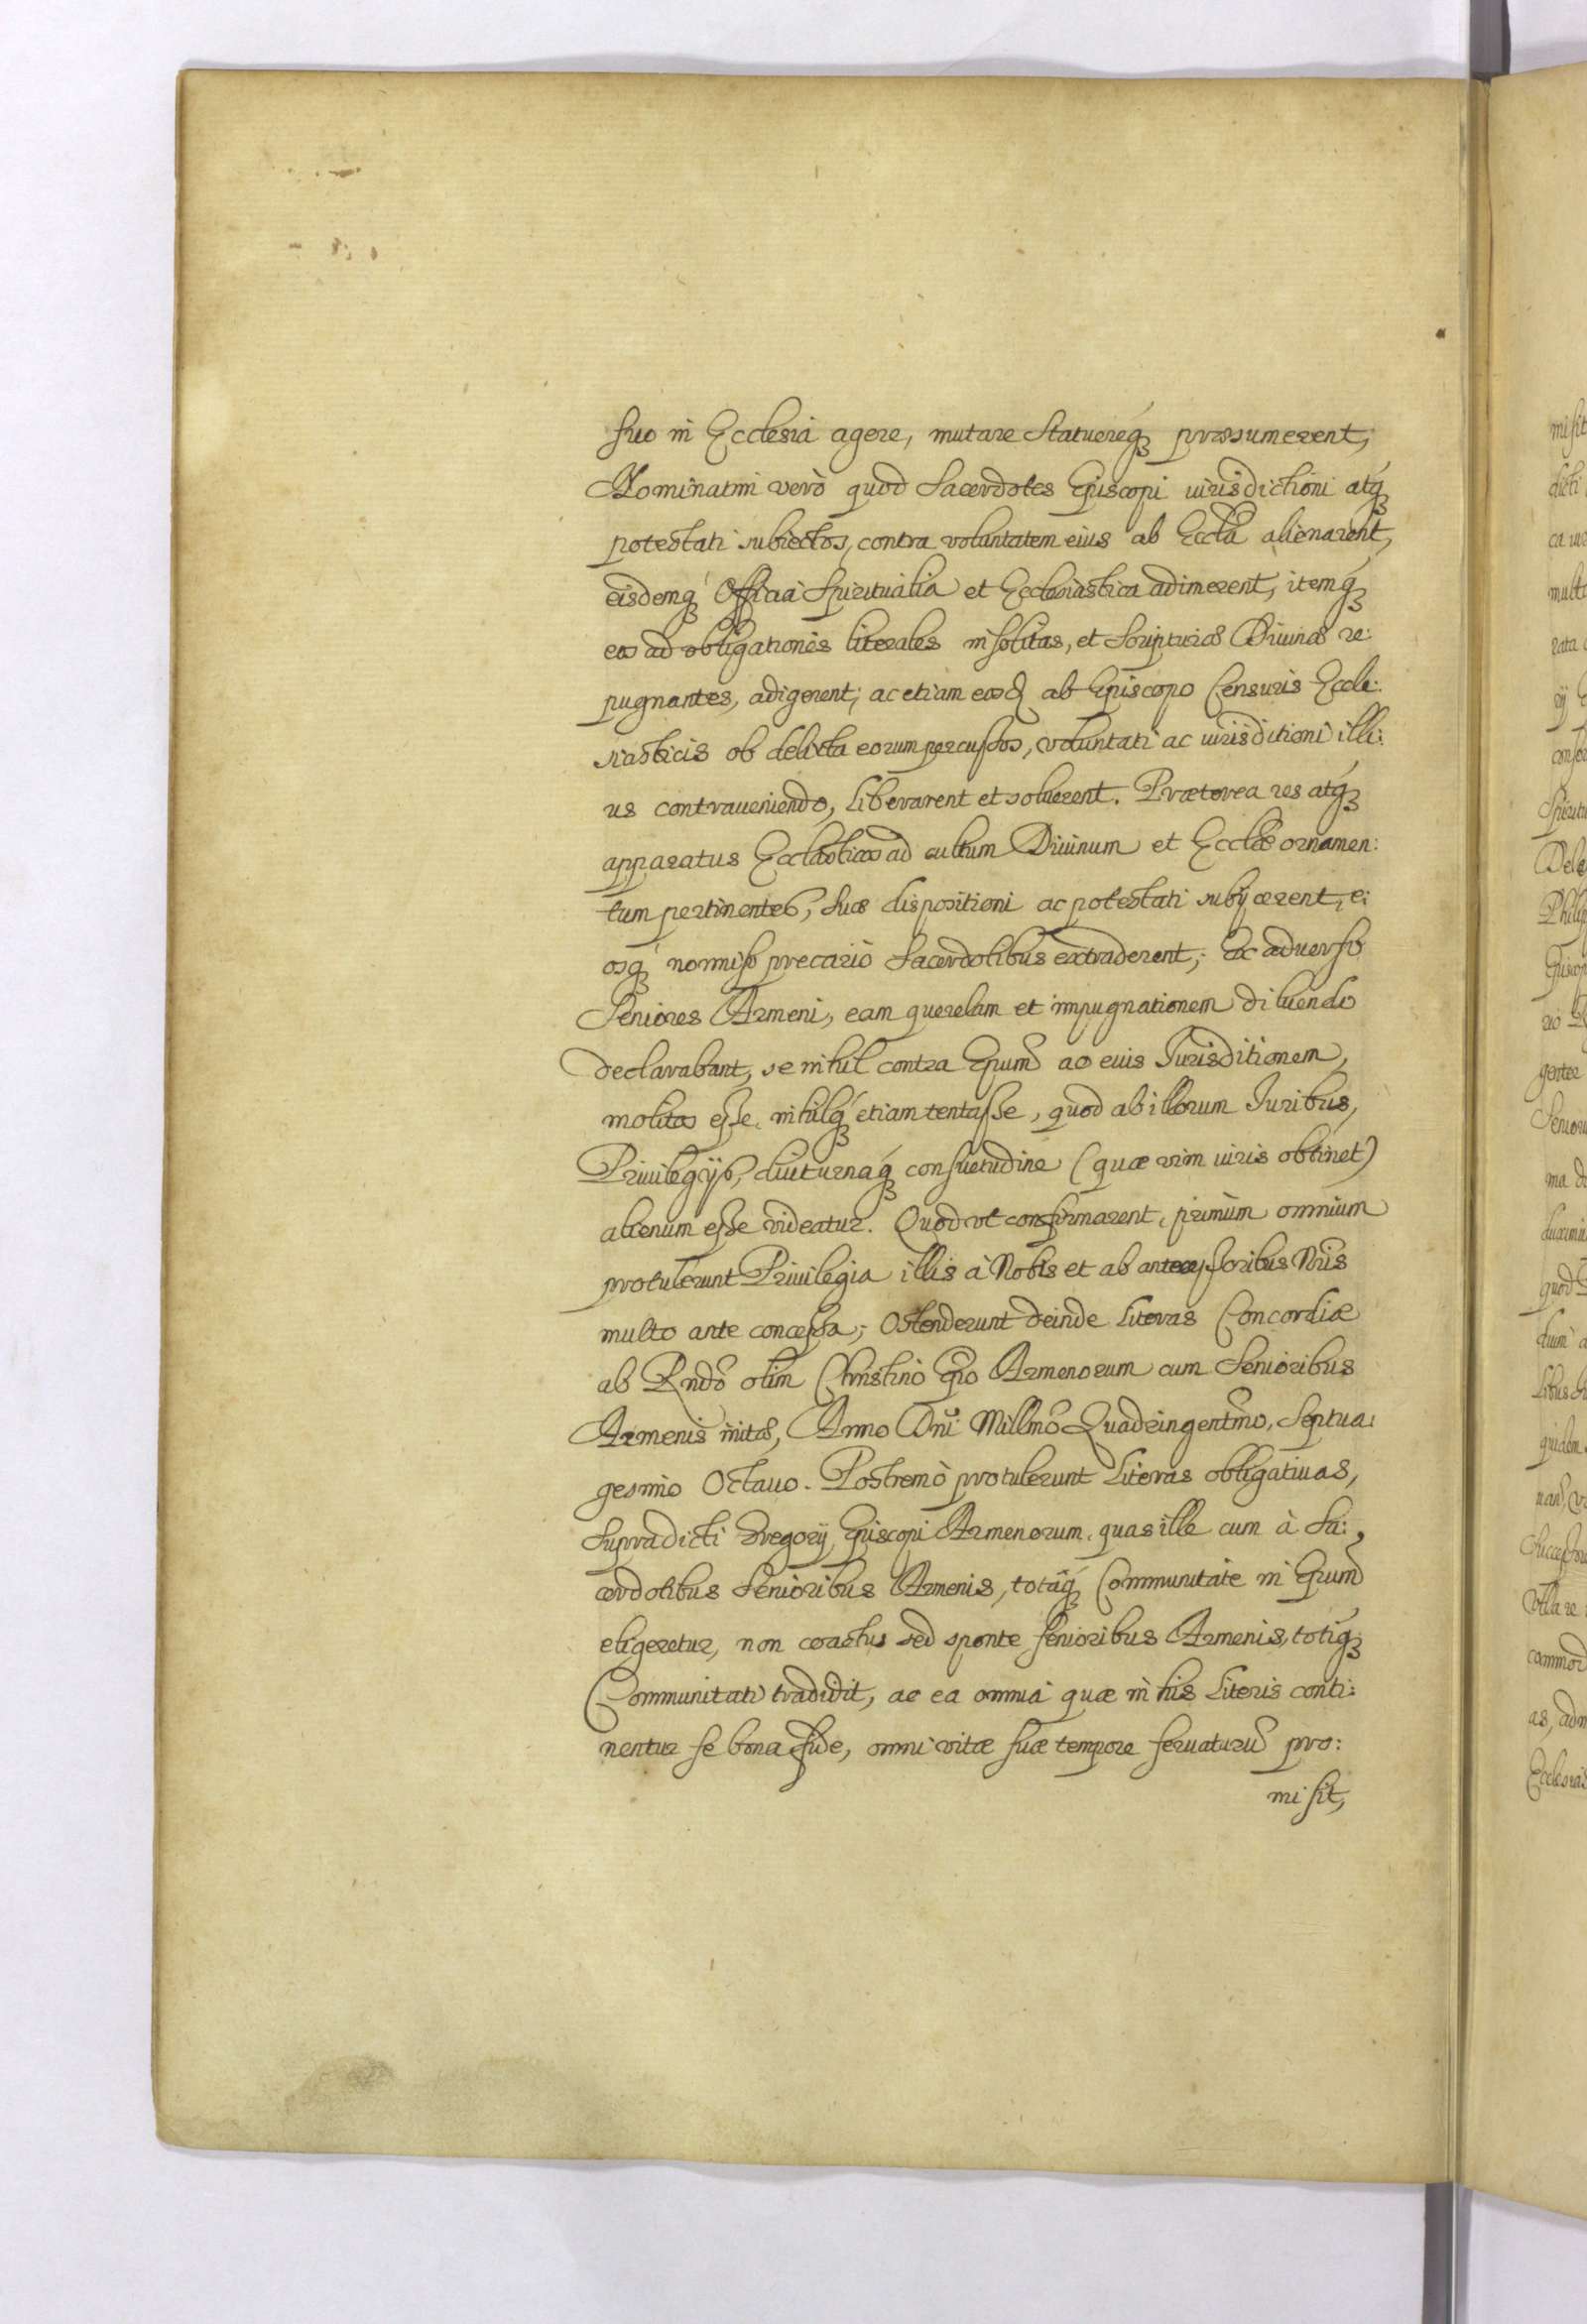 suo in Ecclesia agere, mutare Statuereq́ꝫ præsumerent,
Nominatim verò quòd Sacerdotes Episcopi iurisdictioni atq́ꝫ
potestati subiectos, contra voluntatem eius ab Eccłã alienarent,
eisdemq́ꝫ Officia Spiritualia et Ecclesiastica adimerent, itemq́ꝫ
eos ad obligationes literales insolitas, et Scripturas Diuinas re:
pugnantes, adigerent; ac etiam eosd ab Episcopo Censuris Eccle:
siasticis ob delicta eorum percussos, voluntati ac iurisditioni illi:
us contraueniendo, liberarent et soluerent. Prætereа res atq́ꝫ
apparatus Ecclãsticos ad cultum Diuinum et Ecclæ̃ ornamen:
tum pertinentes, suæ dispositioni ac potestati subijcerent, e:
osq́ꝫ nonnisi precariò Sacerdotibus extraderent; Ex aduerso
Seniores Armeni, eam querelam et impugnationem diluendo
declarabant, se nihil contra Epum̃ ac eius Iurisditionem,
molitos esse, nihilq́ꝫ etiam tentasse, quod ab illorum Iuribus,
Priuilegijs, diuturnaq́ꝫ consuetudine (quæ vim iuris obtinet)
alienum esse videatur. Quod vt confirmarent, primùm omnium
protulerunt Priuilegia illis à Nobis et ab antecessoribus Nr̃is
multo ante concessa; Ostenderunt deinde Literas Concordiæ
ab Rndõ olim Christino Ep̃o Armenorum cum Senioribus
Armenis initas, Anno Dn̄i Millmõ Quadringentm̃o, Septua:
gesimo Octauo. Postremò protulerunt Literas obligatiuas,
supradicti Gregorij Episcopi Armenorum, quas ille cum à Sa:
cerdotibus Senioribus Armenis, totaq́ꝫ Communitate in Epum̃
eligeretur, non coactus sed sponte senioribus Armenis, totiq́ꝫ
Communitati tradidit, ac ea omnia quæ in his Literis conti:
nentur se bona fide, omni vitæ suæ tempore seruaturũ pro:
misit,